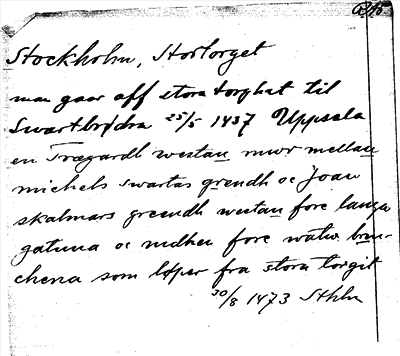 Stockholm, Stortorget
man gaar aff stora torghat til
Swartbrödra 25/5 1437 Uppsala
en Trægardh westan mwr mellan
michels swartas grendh oc Joan
skalmars greendh westan fore langa
gatuna oc nidhen fore watu brun-
chena som löper fra stora torgit
30/8 1473 Sthlm